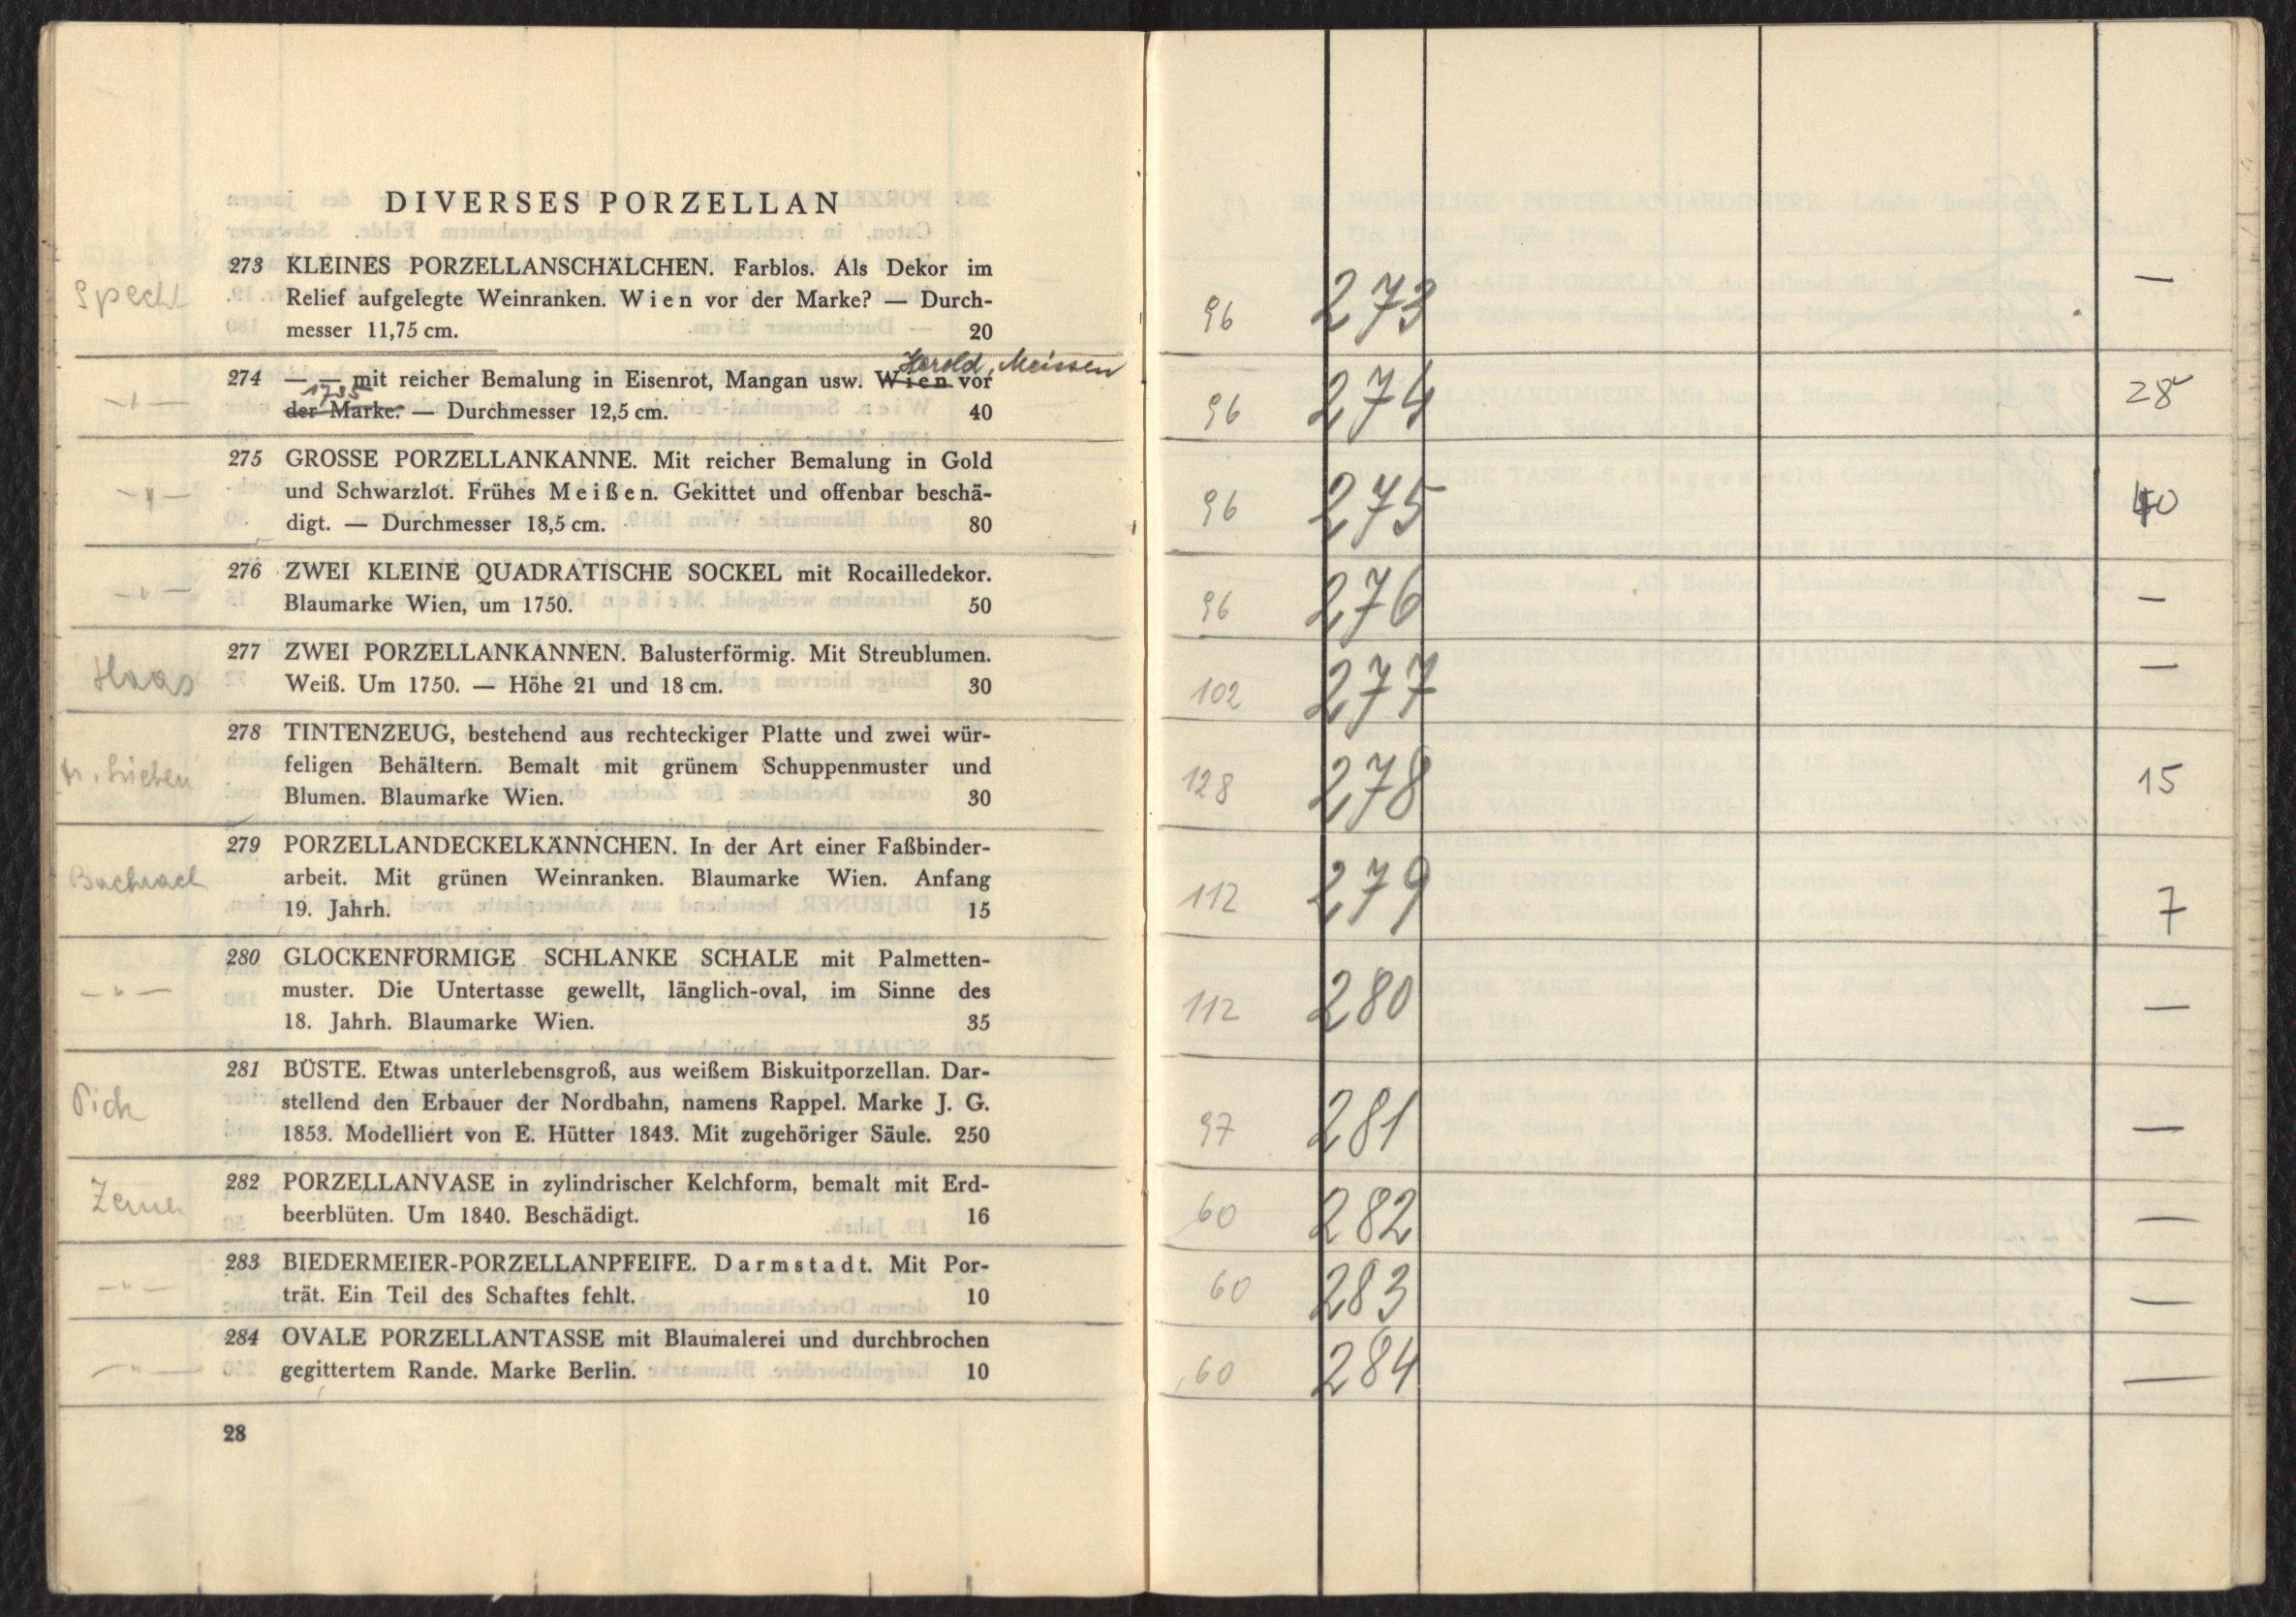 DIVERSES PORZELLAN
Specht
273 KLEINES PORZELLANSCHÄLCHEN. Farblos. Als Dekor im
Relief aufgelegte Weinranken. Wien vor der Marke? — Durch-
messer 11,75 cm. 20
Herold, Meissen
274 — — mit reicher Bemalung in Eisenrot, Mangan usw. Wien vor
1735
der Marke. — Durchmesser 12,5 cm. 40
— " —
275 GROSSE PORZELLANKANNE. Mit reicher Bemalung in Gold
und Schwarzlot. Frühes Meißen. Gekittet und offenbar beschä-
— " —
digt. — Durchmesser 18,5 cm. 80
276 ZWEI KLEINE QUADRATISCHE SOCKEL mit Rocailledekor.
— " —
Blaumarke Wien, um 1750. 50
277 ZWEI PORZELLANKANNEN. Balusterförmig. Mit Streublumen.
Haas
Weiß. Um 1750. — Höhe 21 und 18 cm. 30
278 TINTENZEUG, bestehend aus rechteckiger Platte und zwei wür-
feligen Behältern. Bemalt mit grünem Schuppenmuster und
Blumen. Blaumarke Wien. 30
279 PORZELLANDECKELKÄNNCHEN. In der Art einer Faßbinder-
Bachrach
arbeit. Mit grünen Weinranken. Blaumarke Wien. Anfang
19. Jahrh. 15
280 GLOCKENFÖRMIGE SCHLANKE SCHALE mit Palmetten-
— " —
muster. Die Untertasse gewellt, länglich-oval, im Sinne des
18. Jahrh. Blaumarke Wien. 35
281 BÜSTE. Etwas unterlebensgroß, aus weißem Biskuitporzellan. Dar-
Pick
stellend den Erbauer der Nordbahn, namens Rappel. Marke J. G.
1853. Modelliert von E. Hütter 1843. Mit zugehöriger Säule. 250
282 PORZELLANVASE in zylindrischer Kelchform, bemalt mit Erd-
beerblüten. Um 1840. Beschädigt. 16
283 BIEDERMEIER-PORZELLANPFEIFE. Darmstadt. Mit Por-
— " —
trät. Ein Teil des Schaftes fehlt. 10
284 OVALE PORZELLANTASSE mit Blaumalerei und durchbrochen
— " —
gegittertem Rande. Marke Berlin. 10
28
96 273 —
96 274 28
96 275 40
96 276 —
102 277 —
128 278 15
112 279 7
112 280 —
97 281 —
60 282 —
60 283 —
60 284 —